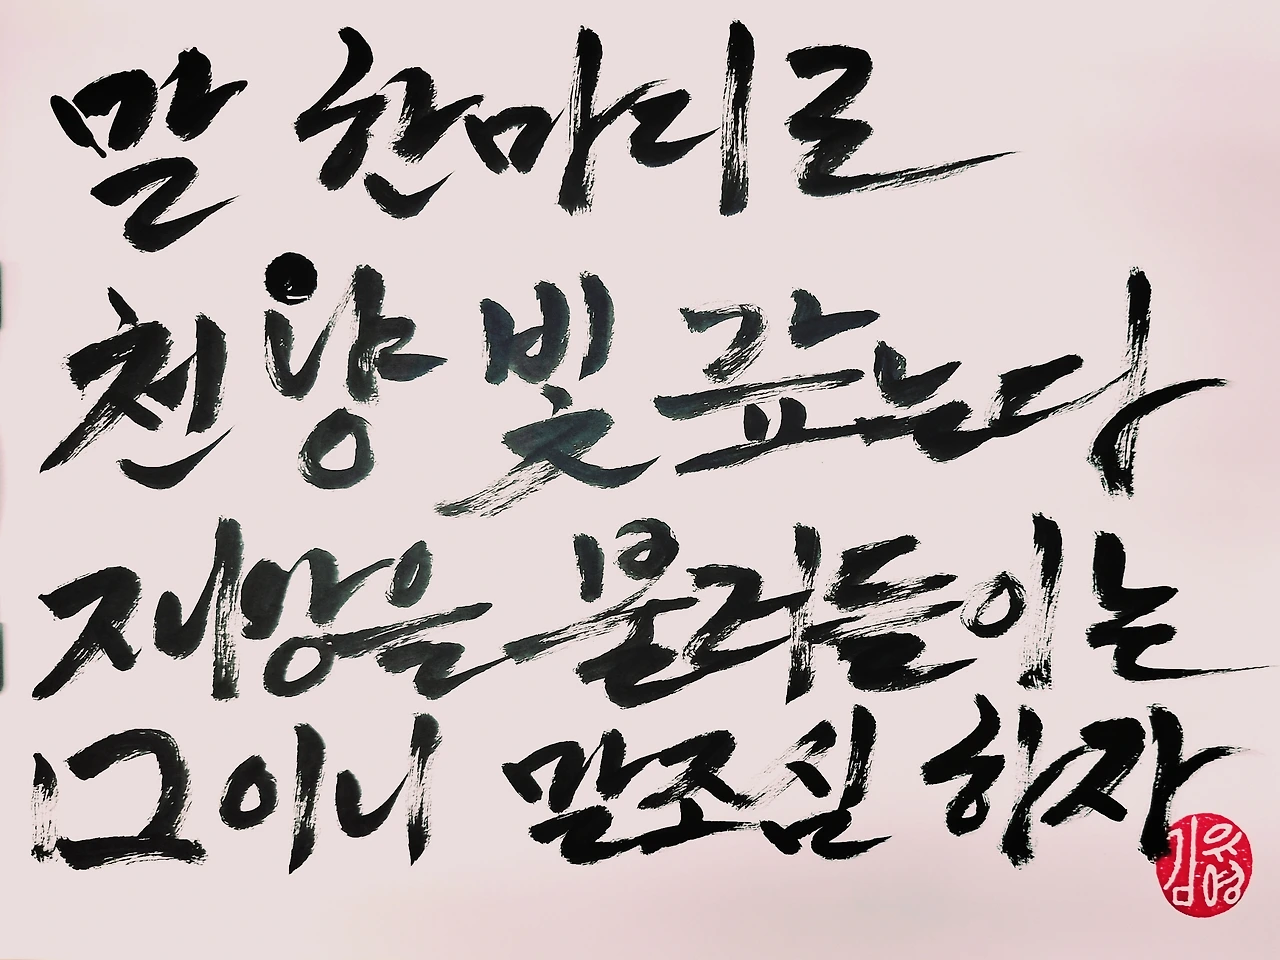 말 한마디로
천냥 빚 갚는다
재앙을 불러들이는
口이니 말조심 하자
김유영